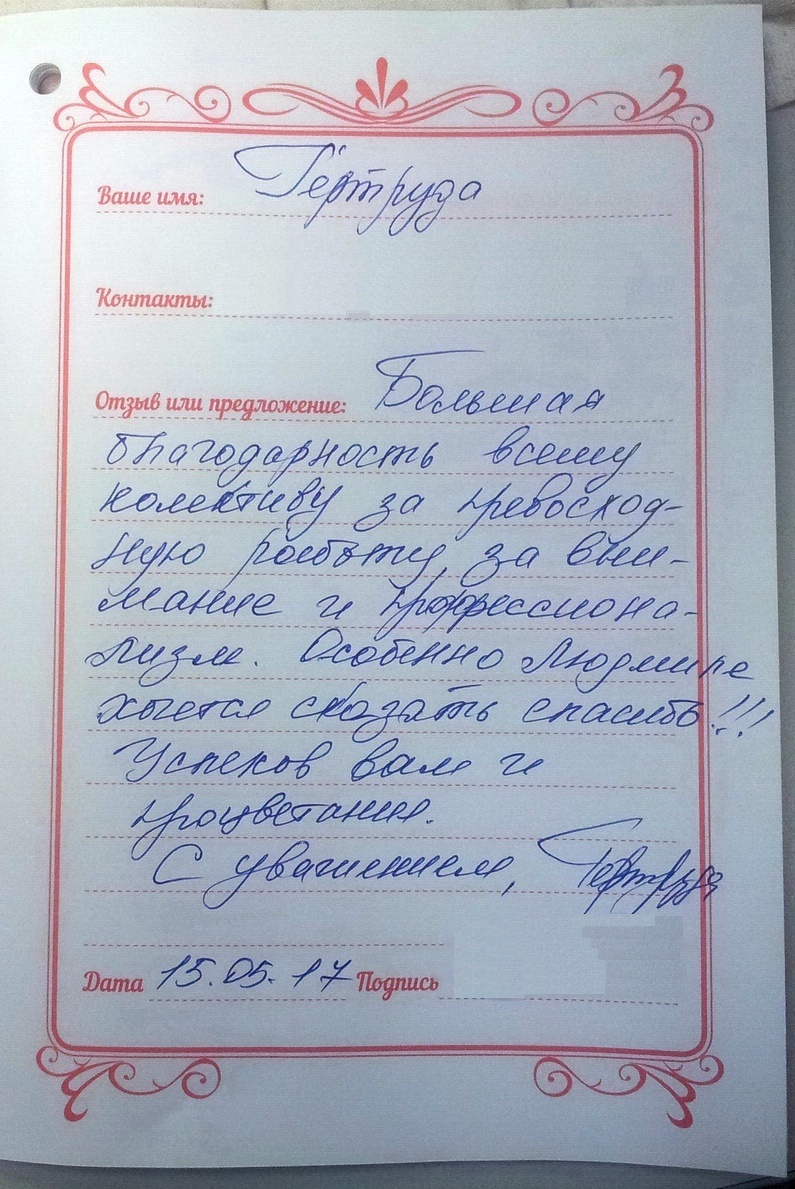 Ваше имя: Гёртруда
Контакты:
Отзыв или предложение: Большая
благодарность всему
колективу за превосход-
ную работу, за вни-
мание и профессиона-
лизм. Особенно Людмиле
хочется сказать спасибо!!!
Успехов вам и
процветания.
С уважением, Гёртруда
Дата 15.05.17 Подпись